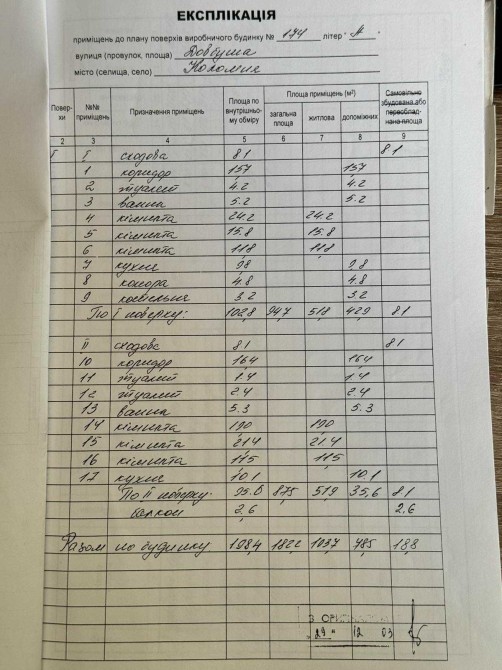 ЕКСПЛІКАЦІЯ
приміщень до плану поверхів виробничого будинку № 174 літер "А"
вулиця (провулок, площа) Довбуша
місто (селища, село) Коломия
Повер-хи №№ приміщень Призначення приміщень Площа по внутрішньо-му обміру Площа приміщень (м²) загальна площа житлова допоміжних Самовільно збудована або переоблад-нана площа
2 3 4 5 6 7 8 9
І І сходова 8.1 8.1
1 коридор 15,7 15,7
2 туалет 4.2 4.2
3 ванна 5.2 5.2
4 кімната 24.2 24.2
5 кімната 15.8 15.8
6 кімната 11,8 11,8
7 кухня 9,8 9,8
8 комора 4.8 4.8
9 котельня 3.2 3.2
По І поверху: 102,8 94,7 51,8 42,9 8,1
ІІ сходова 8.1 8.1
10 коридор 16,4 16,4
11 туалет 1.4 1.4
12 туалет 2.4 2.4
13 ванна 5.3 5.3
14 кімната 19,0 19,0
15 кімната 21.4 21.4
16 кімната 11,5 11,5
17 кухня 10,1 10.1
По ІІ поверху: 95.6 87,5 51,9 35,6 8.1
балкон 2,6 2,6
Разом по будинку 198,4 182,2 103,7 78,5 18,8
"29" 12 03